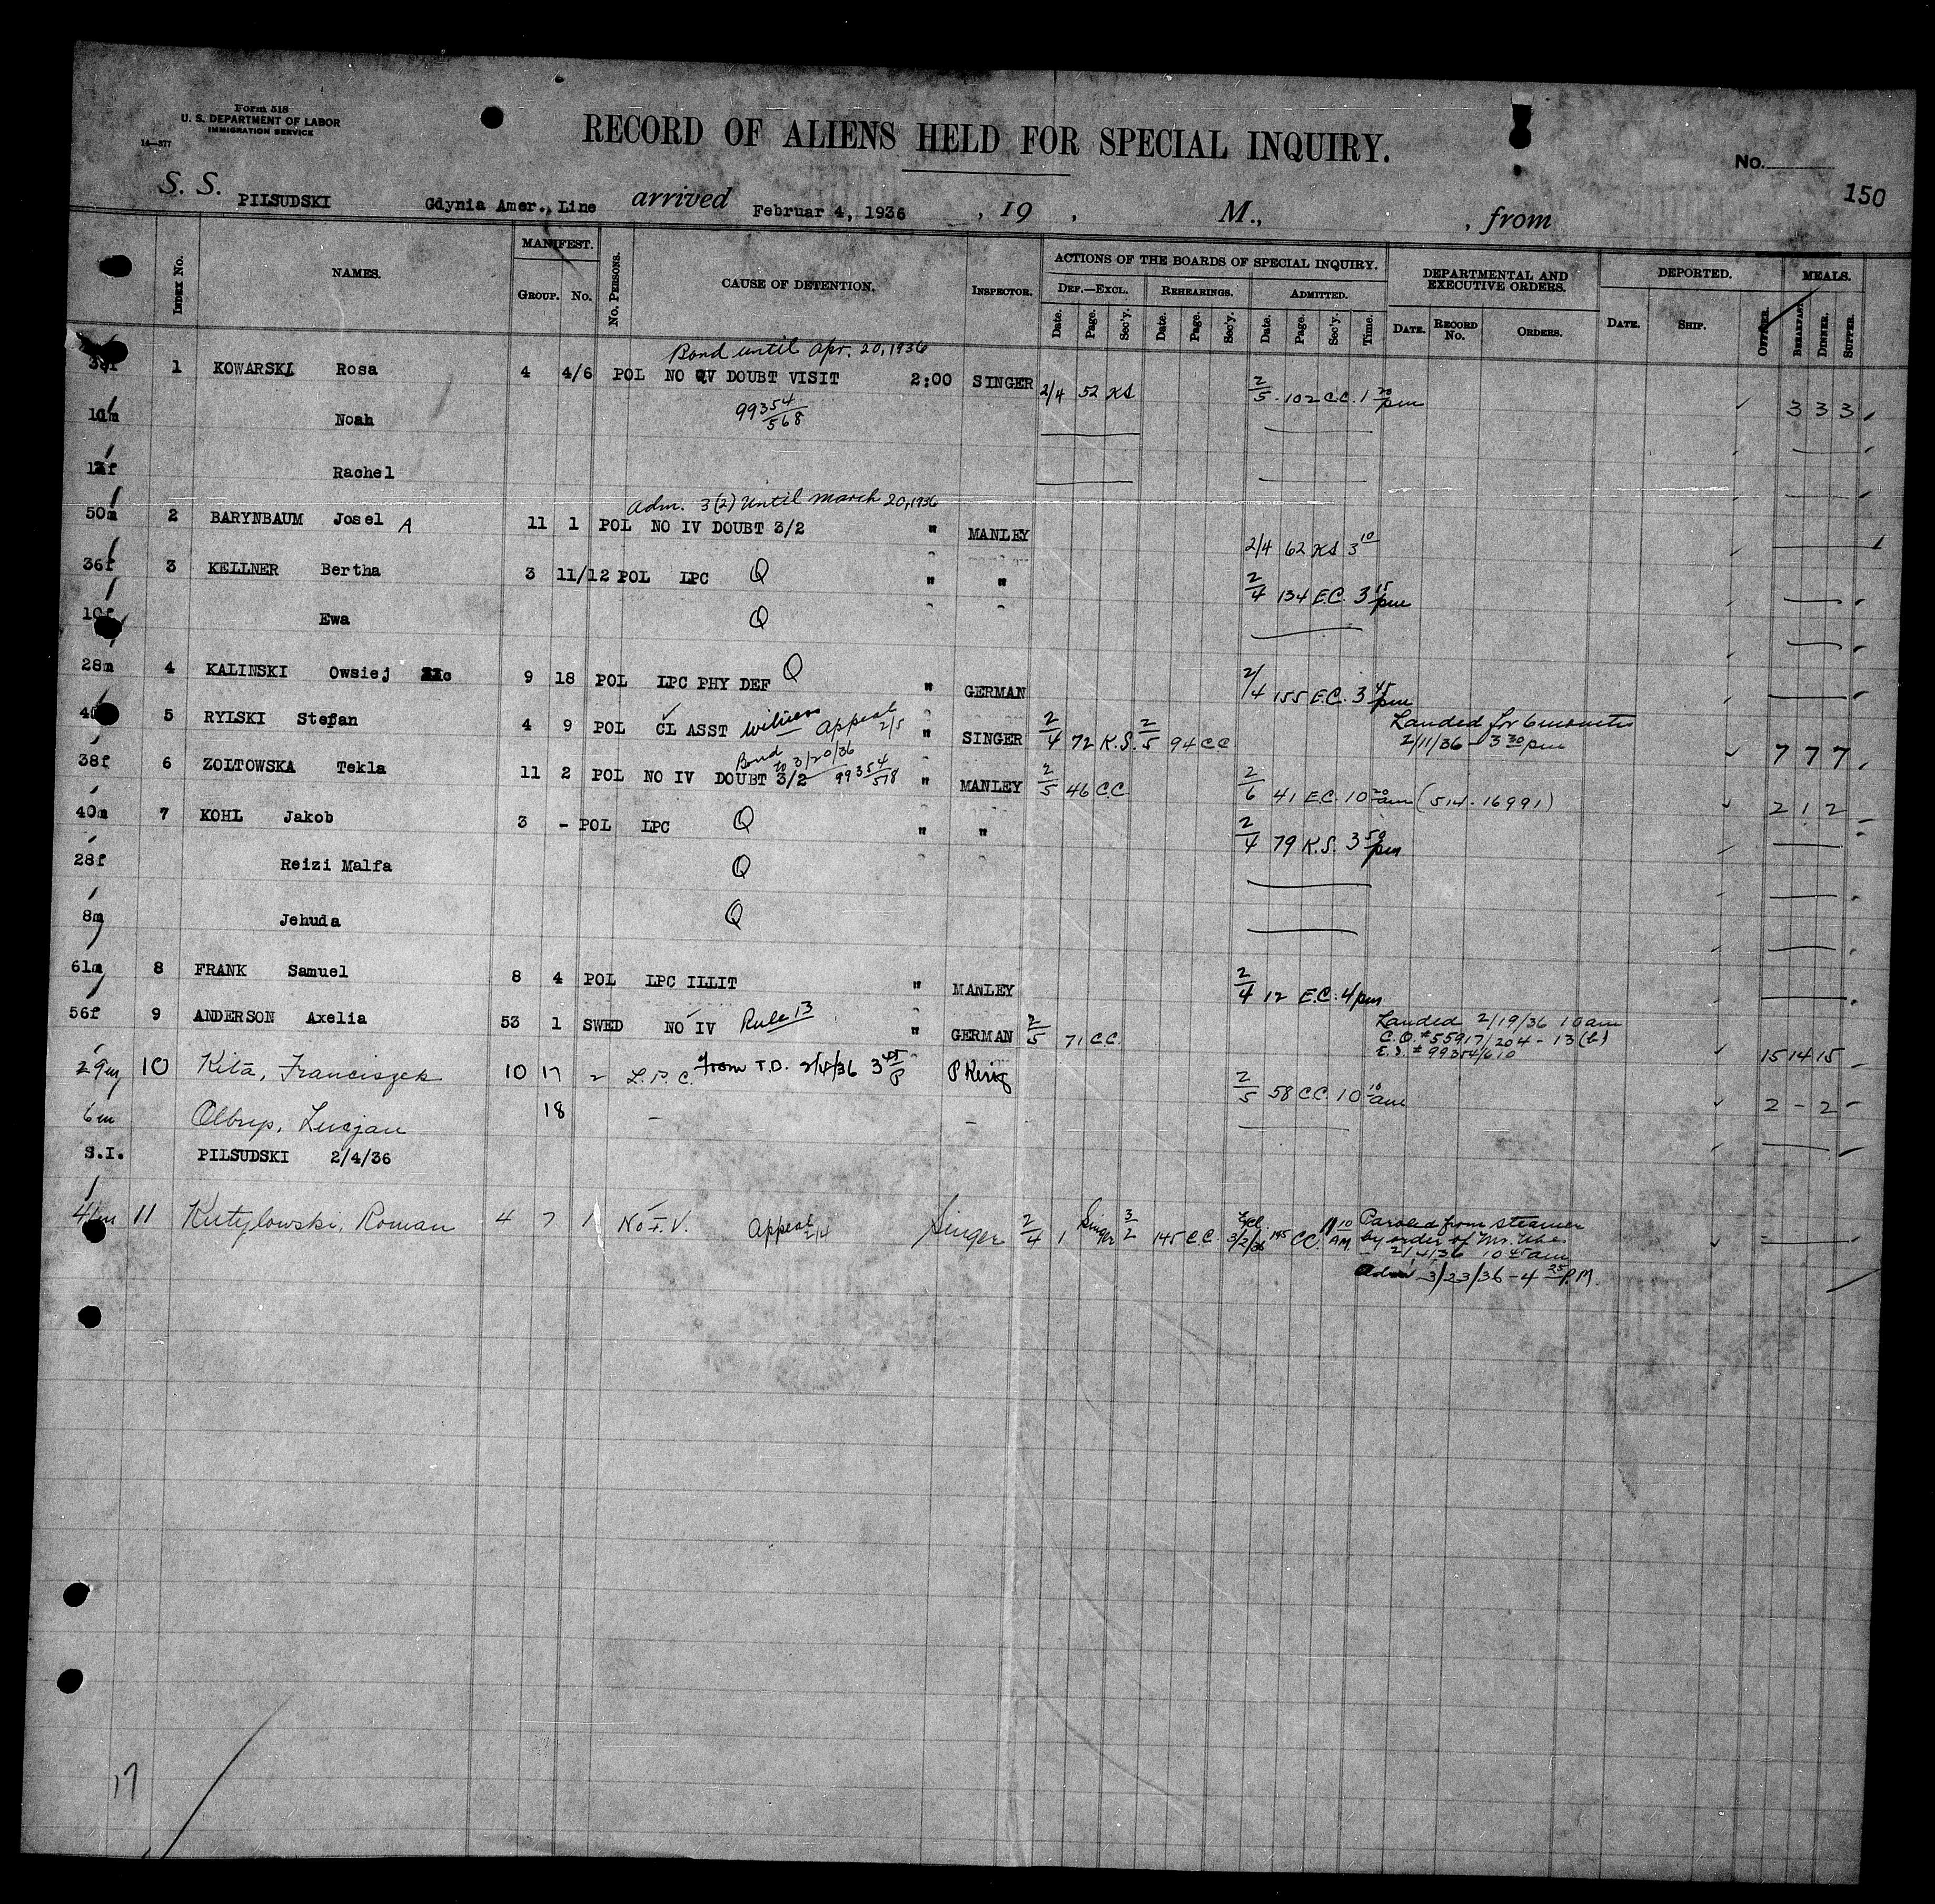 Form 518
U. S. DEPARTMENT OF LABOR
IMMIGRATION SERVICE
14—577
RECORD OF ALIENS HELD FOR SPECIAL INQUIRY.
No.
150
S. S. PILSUDSKI Gdynia Amer., Line arrived Februar 4, 1936 , 19 , M., , from
INDEX NO. NAMES. MANIFEST. GROUP. NO. NO. PERSONS. CAUSE OF DETENTION. INSPECTOR. ACTIONS OF THE BOARDS OF SPECIAL INQUIRY. DEF.—EXCL. REHEARINGS. ADMITTED. DEPARTMENTAL AND EXECUTIVE ORDERS. DEPORTED. MEALS.
Date. Page. Sec'y. Date. Page. Sec'y. Date. Page. Sec'y. Time. DATE. RECORD NO. ORDERS. DATE. SHIP. OFFICER. BREAKFAST. DINNER. SUPPER.
Bond until Apr. 20, 1936
1 KOWARSKI Rosa 4 4/6 POL NO IV DOUBT VISIT 2:00 SINGER 2/4 52 KS 2/5 102 C.C. 1 20 pm 3 3 3
Noah 99354/568
Rachel
Adm. 3(2) Until March 20, 1936
50m 2 BARYNBAUM Josel A 11 1 POL NO IV DOUBT 3/2 " MANLEY 2/4 62 KS 3 10
36f 3 KELLNER Bertha 3 11/12 POL LPC Q " " 2/4 134 E.C. 3 15 pm
10f Ewa Q
28m 4 KALINSKI Owsiej 9 18 POL LPC PHY DEF Q " GERMAN 2/4 155 E.C. 3 45 pm
5 RYLSKI Stefan 4 9 POL CL ASST witness Appeal 2/5 " SINGER 2/4 72 K.S. 2/5 94 C.C. Landed for 6 months
2/11/36 - 3 30 pm 7 7 7
Bond to 3/20/36
38f 6 ZOLTOWSKA Tekla 11 2 POL NO IV DOUBT 3/2 99354/518 " MANLEY 2/5 46 C.C. 2/6 41 E.C. 10 20 am (514-16991) 2 1 2
40m 7 KOHL Jakob 3 - POL LPC Q " " 2/4 79 K.S. 3 50 pm
28f Reizi Malfa Q
8m Jehuda Q
61m 8 FRANK Samuel 8 4 POL LPC ILLIT " MANLEY 2/4 12 E.C. 4 pm
56f 9 ANDERSON Axelia 53 1 SWED NO IV Rule 13 " GERMAN 2/5 71 C.C. Landed 2/19/36 10 am
C.O. #55917/204-13(b)
E.I. #99354/610 15 14 15
29m 10 Kita, Franciszek 10 17 2 L.P.C. From T.D. 2/4/36 3 45 P 2/5 58 C.C. 10 10 am 2 - 2
6m Lucjan 18 —
S.I. PILSUDSKI 2/4/36
11 Kutylowski, Roman 4 7 1 No I.V. Appeal 2/4 Singer 2/4 1 Singer 3/2 145 C.C. Excl. 3/2/36 145 CC. 11 10 AM. Paroled from steamer
by order of Mr.
2/4/36 10 45 am
3/23/36 - 4 25 P.M.
17